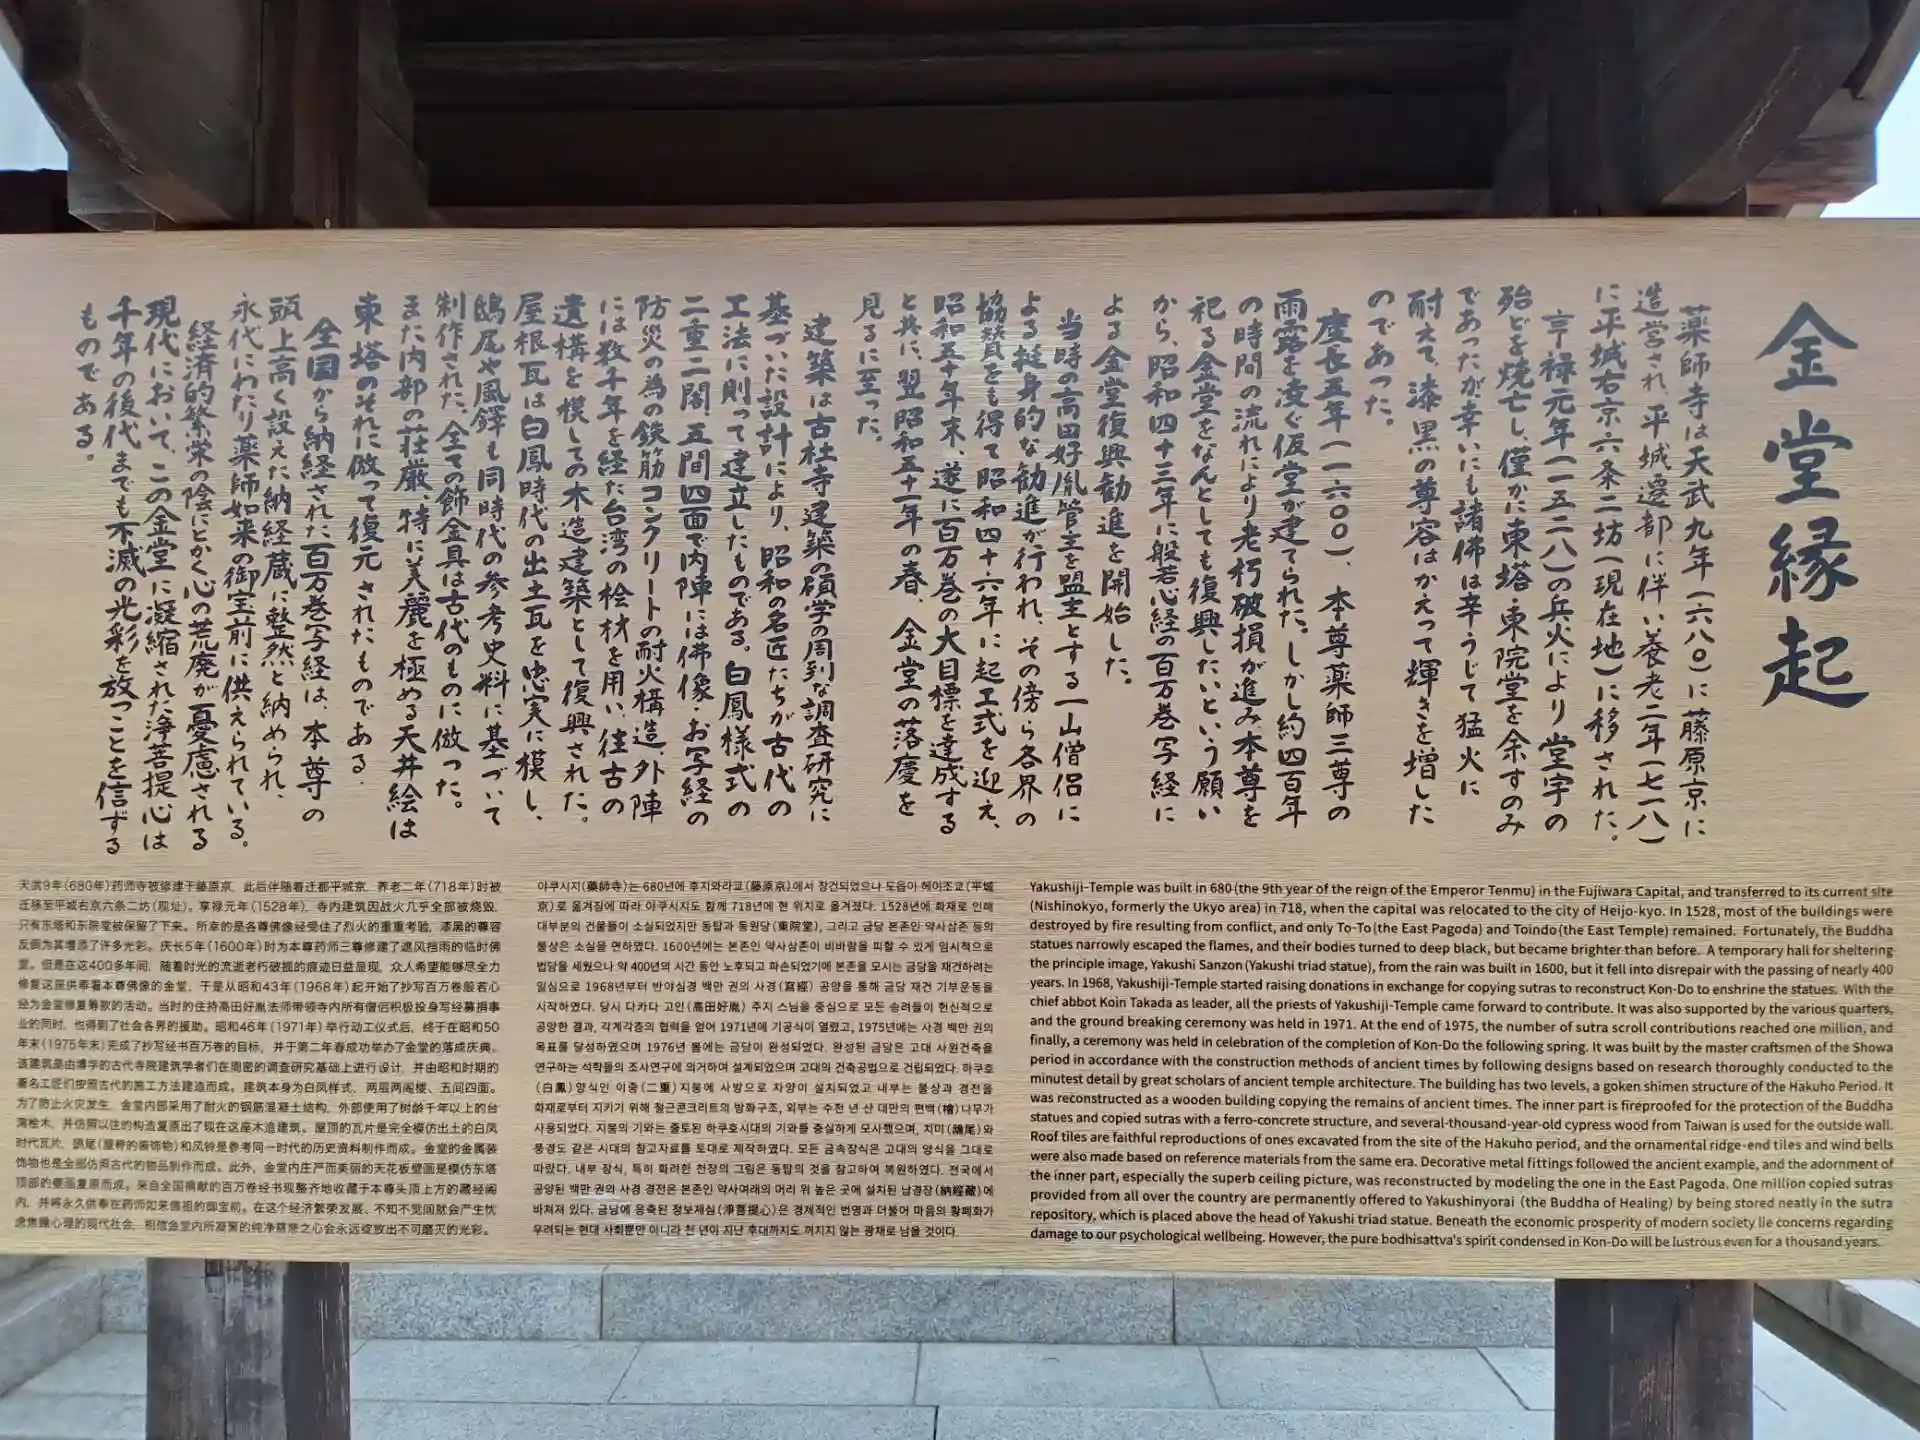 金堂縁起
薬師寺は天武九年(六八〇)に藤原京に
造営され、平城遷都に伴い養老二年(七一八)
に平城右京六条二坊(現在地)に移された。
亨禄元年(一五二八)の兵火により堂宇の
殆どを焼亡し、僅かに東塔・東院堂を余すのみ
であったが幸いにも諸佛は辛うじて猛火に
耐えて、漆黒の尊容はかえって輝きを増した
のであった。
慶長五年(一六〇〇)、本尊薬師三尊の
雨露を凌ぐ仮堂が建てられた。しかし約四百年
の時間の流れにより老朽破損が進み本尊を
祀る金堂をなんとしても復興したいという願い
から、昭和四十三年に般若心経の百万巻写経に
よる金堂復興勧進を開始した。
当時の高田好胤管主を盟主とする一山僧侶に
よる挺身的な勧進が行われ、その傍ら各界の
協賛をも得て昭和四十六年に起工式を迎え、
昭和五十年末、遂に百万巻の大目標を達成する
と共に、翌昭和五十一年の春、金堂の落慶を
見るに至った。
建築は古社寺建築の碩学の周到な調査研究に
基づいた設計により、昭和の名匠たちが古代の
工法に則って建立したものである。白鳳様式の
二重二閣、五間四面で内陣には佛像・お写経の
防災の為の鉄筋コンクリートの耐火構造、外陣
には数千年を経た台湾の桧材を用い、往古の
遺構を模しての木造建築として復興された。
屋根瓦は白鳳時代の出土瓦を忠実に模し、
鴟尾や風鐸も同時代の参考史料に基づいて
制作された。全ての飾金具は古代のものに倣った。
また内部の荘厳、特に美麗を極める天井絵は
東塔のそれに倣って復元されたものである.
全国から納経された百万巻写経は、本尊の
頭上高く設えた納経蔵に整然と納められ、
永代にわたり薬師如来の御宝前に供えられている。
経済的繁栄の陰にとかく心の荒廃が憂慮される
現代において、この金堂に凝縮された浄菩提心は
千年の後代までも不滅の光彩を放つことを信ずる
ものである。
天武9年(680年)药师寺被修建于藤原京，此后伴随着迁都平城京，养老二年(718年)时被
迁移至平城右京六条二坊(现址)。享禄元年(1528年)，寺内建筑因战火几乎全部被烧毁，
只有东塔和东院堂被保留了下来。所幸的是各尊佛像经受住了烈火的重重考验，漆黑的尊容
反倒为其增添了许多光彩。庆长5年(1600年)时为本尊药师三尊修建了遮风挡雨的临时佛
堂。但是在这400多年间，随着时光的流逝老朽破损的痕迹日益显现，众人希望能够尽全力
修复这座供奉着本尊佛像的金堂，于是从昭和43年(1968年)起开始了抄写百万卷般若心
经为金堂修复筹款的活动。当时的住持高田好胤法师带领寺内所有僧侣积极投身写经募捐事
业的同时，也得到了社会各界的援助。昭和46年(1971年)举行动工仪式后，终于在昭和50
年末(1975年末)完成了抄写经书百万卷的目标，并于第二年春成功举办了金堂的落成庆典。
该建筑是由博学的古代寺院建筑学者们在周密的调查研究基础上进行设计，并由昭和时期的
著名工匠们按照古代的施工方法建造而成。建筑本身为白凤样式、两层两阁楼、五间四面。
为了防止火灾发生，金堂内部采用了耐火的钢筋混凝土结构，外部使用了树龄千年以上的台
湾桧木，并仿照以往的构造复原出了现在这座木造建筑。屋顶的瓦片是完全模仿出土的白凤
时代瓦片，鸱尾(屋脊的装饰物)和风铃是参考同一时代的历史资料制作而成。金堂的金属装
饰物也是全部仿照古代的物品制作而成。此外，金堂内庄严而美丽的天花板壁画是模仿东塔
顶部的壁画复原而成。来自全国捐献的百万卷经书现整齐地收藏于本尊头顶上方的藏经阁
内，并将永久供奉在药师如来佛祖的御宝前。在这个经济繁荣发展、不知不觉间就会产生忧
虑焦躁心理的现代社会，相信金堂内所凝聚的纯净慈悲之心会永远绽放出不可磨灭的光彩。
야쿠시지(藥師寺)는 680년에 후지와라쿄(藤原京)에서 창건되었으나 도읍아 헤이조쿄(平城
京)로 옮겨짐에 따라 야쿠시지도 함께 718년에 현 위치로 옮겨졌다. 1528년에 화재로 인해
대부분의 건물들이 소실되었지만 동탑과 동원당(東院堂), 그리고 금당 본존인 약사삼존 등의
불상은 소실을 면하였다. 1600년에는 본존인 약사삼존이 비바람을 피할 수 있게 임시적으로
법당을 세웠으나 약 400년의 시간 동안 노후되고 파손되었기에 본존을 모시는 금당을 재건하려는
일심으로 1968년부터 반야심경 백만 권의 사경(寫經) 공양을 통해 금당 재건 기부운동을
시작하였다. 당시 다카다 고인(高田好胤) 주지 스님을 중심으로 모든 승려들이 헌신적으로
공양한 결과, 각계각층의 협력을 얻어 1971년에 기공식이 열렸고, 1975년에는 사경 백만 권의
목표를 달성하였으며 1976년 봄에는 금당이 완성되었다. 완성된 금당은 고대 사원건축을
연구하는 석학들의 조사연구에 의거하여 설계되었으며 고대의 건축공법으로 건립되었다. 하쿠호
(白鳳) 양식인 이중(二重) 지붕에 사방으로 차양이 설치되었고 내부는 불상과 경전을
화재로부터 지키기 위해 철근콘크리트의 방화구조, 외부는 수천 년 산 대만의 편백(檜)나무가
사용되었다. 지붕의 기와는 출토된 하쿠호시대의 기와를 충실하게 모사했으며, 치미(鴟尾)와
풍경도 같은 시대의 참고자료를 토대로 제작하였다. 모든 금속장식은 고대의 양식을 그대로
따랐다. 내부 장식, 특히 화려한 천장의 그림은 동탑의 것을 참고하여 복원하였다. 전국에서
공양된 백만 권의 사경 경전은 본존인 약사여래의 머리 위 높은 곳에 설치된 납경장(納經藏)에
바쳐져 있다. 금당에 응축된 정보제심(淨菩提心)은 경제적인 번영과 더불어 마음의 황폐화가
우려되는 현대 사회뿐만 아니라 천 년이 지난 후대까지도 꺼지지 않는 광채로 남을 것이다.
Yakushiji-Temple was built in 680 (the 9th year of the reign of the Emperor Tenmu) in the Fujiwara Capital, and transferred to its current site
(Nishinokyo, formerly the Ukyo area) in 718, when the capital was relocated to the city of Heijo-kyo. In 1528, most of the buildings were
destroyed by fire resulting from conflict, and only To-To (the East Pagoda) and Toindo (the East Temple) remained. Fortunately, the Buddha
statues narrowly escaped the flames, and their bodies turned to deep black, but became brighter than before. A temporary hall for sheltering
the principle image, Yakushi Sanzon (Yakushi triad statue), from the rain was built in 1600, but it fell into disrepair with the passing of nearly 400
years. In 1968, Yakushiji-Temple started raising donations in exchange for copying sutras to reconstruct Kon-Do to enshrine the statues. With the
chief abbot Koin Takada as leader, all the priests of Yakushiji-Temple came forward to contribute. It was also supported by the various quarters,
and the ground breaking ceremony was held in 1971. At the end of 1975, the number of sutra scroll contributions reached one million, and
finally, a ceremony was held in celebration of the completion of Kon-Do the following spring. It was built by the master craftsmen of the Showa
period in accordance with the construction methods of ancient times by following designs based on research thoroughly conducted to the
minutest detail by great scholars of ancient temple architecture. The building has two levels, a goken shimen structure of the Hakuho Period. It
was reconstructed as a wooden building copying the remains of ancient times. The inner part is fireproofed for the protection of the Buddha
statues and copied sutras with a ferro-concrete structure, and several-thousand-year-old cypress wood from Taiwan is used for the outside wall.
Roof tiles are faithful reproductions of ones excavated from the site of the Hakuho period, and the ornamental ridge-end tiles and wind bells
were also made based on reference materials from the same era. Decorative metal fittings followed the ancient example, and the adornment of
the inner part, especially the superb ceiling picture, was reconstructed by modeling the one in the East Pagoda. One million copied sutras
provided from all over the country are permanently offered to Yakushinyorai (the Buddha of Healing) by being stored neatly in the sutra
repository, which is placed above the head of Yakushi triad statue. Beneath the economic prosperity of modern society lie concerns regarding
damage to our psychological wellbeing. However, the pure bodhisattva's spirit condensed in Kon-Do will be lustrous even for a thousand years.